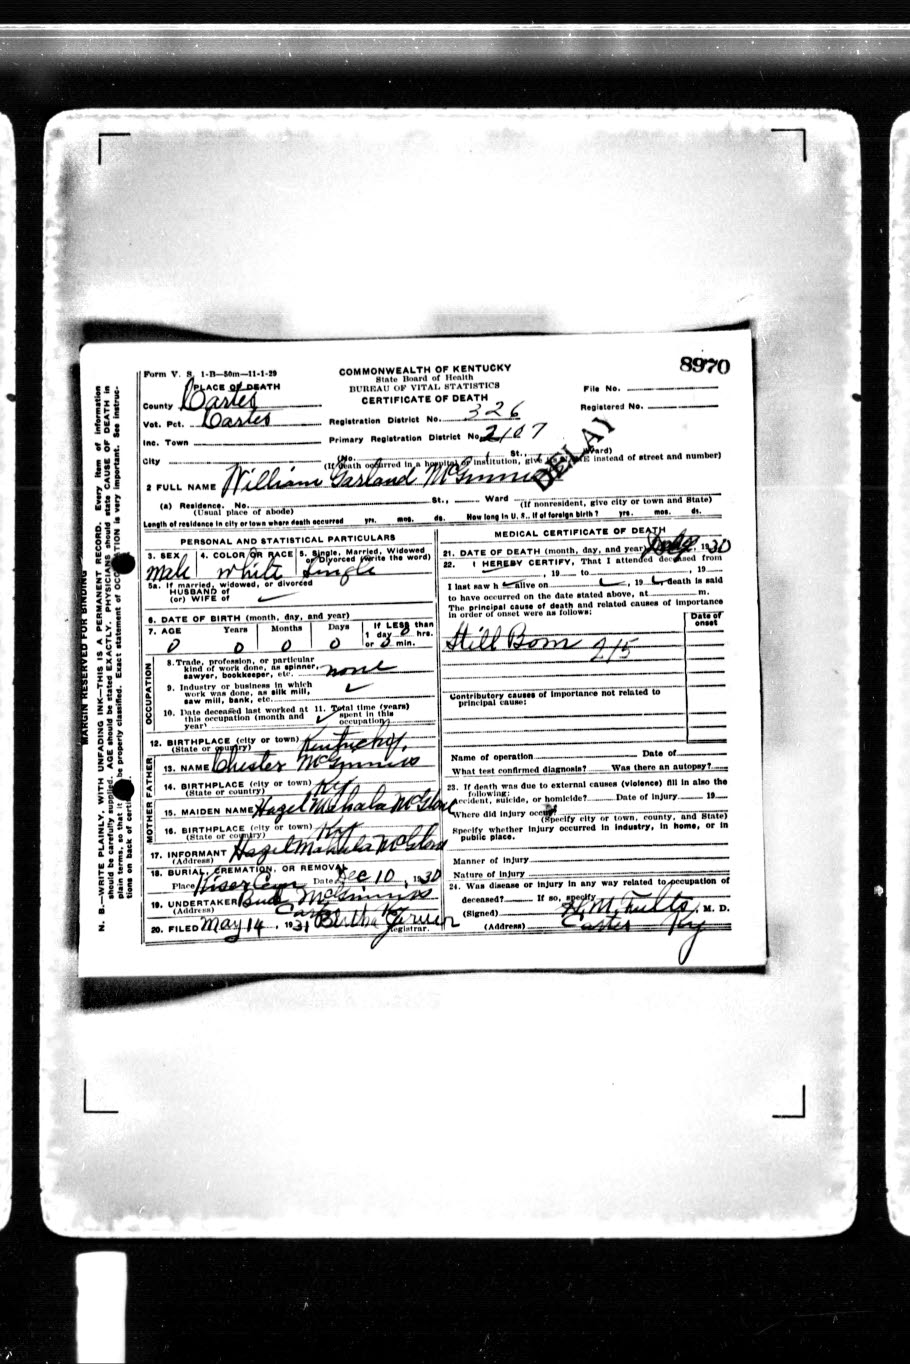 8970
Form V. S. 1-B—50m—11-1-29
COMMONWEALTH OF KENTUCKY
State Board of Health
BUREAU OF VITAL STATISTICS
CERTIFICATE OF DEATH
PLACE OF DEATH
County Carter
Vot. Pct. Carter
Inc. Town
City
Registration District No. 326
Primary Registration District No. 2107
File No.
Registered No.
(No. St., Ward)
(If death occurred in a hospital or institution, give its NAME instead of street and number)
DELAY
2 FULL NAME William Garland McGinnis
(a) Residence. No. St., Ward
(Usual place of abode) (If nonresident, give city or town and State)
Length of residence in city or town where death occurred yrs. mos. ds. How long in U. S., if of foreign birth? yrs. mos. ds.
PERSONAL AND STATISTICAL PARTICULARS
3. SEX 4. COLOR OR RACE 5. Single, Married, Widowed
or Divorced (write the word)
Male white Single
5a. If married, widowed, or divorced
HUSBAND of
(or) WIFE of
6. DATE OF BIRTH (month, day, and year)
7. AGE Years Months Days If LESS than
1 day 0 hrs.
or 0 min.
0 0 0 0
OCCUPATION
8. Trade, profession, or particular
kind of work done, as spinner,
sawyer, bookkeeper, etc. none
9. Industry or business in which
work was done, as silk mill,
saw mill, bank, etc.
10. Date deceased last worked at
this occupation (month and
year)
11. Total time (years)
spent in this
occupation
12. BIRTHPLACE (city or town) Kentucky.
(State or country)
FATHER
13. NAME Chester McGinnis
14. BIRTHPLACE (city or town) Ky
(State or country)
MOTHER
15. MAIDEN NAME Hazel Mahala McGlone
16. BIRTHPLACE (city or town) Ky
(State or country)
17. INFORMANT Hazel Mahala McGlone
(Address)
18. BURIAL, CREMATION, OR REMOVAL
Place Kiser Cem Date Dec 10, 1930
19. UNDERTAKER Bud McGinnis
(Address) Carter Ky
20. FILED May 14, 1931 Bertha
Registrar.
MEDICAL CERTIFICATE OF DEATH
21. DATE OF DEATH (month, day, and year) 1930
22. I HEREBY CERTIFY, That I attended deceased from
, 19 to , 19
I last saw h alive on , 19 , death is said
to have occurred on the date stated above, at m.
The principal cause of death and related causes of importance
in order of onset were as follows:
Date of
onset
Still Born 215
Contributory causes of importance not related to
principal cause:
Name of operation Date of
What test confirmed diagnosis? Was there an autopsy?
23. If death was due to external causes (violence) fill in also the
following:
Accident, suicide, or homicide? Date of injury 19
Where did injury occur?
(Specify city or town, county, and State)
Specify whether injury occurred in industry, in home, or in
public place.
Manner of injury
Nature of injury
24. Was disease or injury in any way related to occupation of
deceased? If so, specify
(Signed) H. M. Fults, M. D.
(Address) Carter Ky
MARGIN RESERVED FOR BINDING
N. B.—WRITE PLAINLY, WITH UNFADING INK—THIS IS A PERMANENT RECORD. Every item of information
should be carefully supplied. AGE should be stated EXACTLY. PHYSICIANS should state CAUSE OF DEATH in
plain terms, so that it be properly classified. Exact statement of OCCUPATION is very important. See instruc-
tions on back of certi